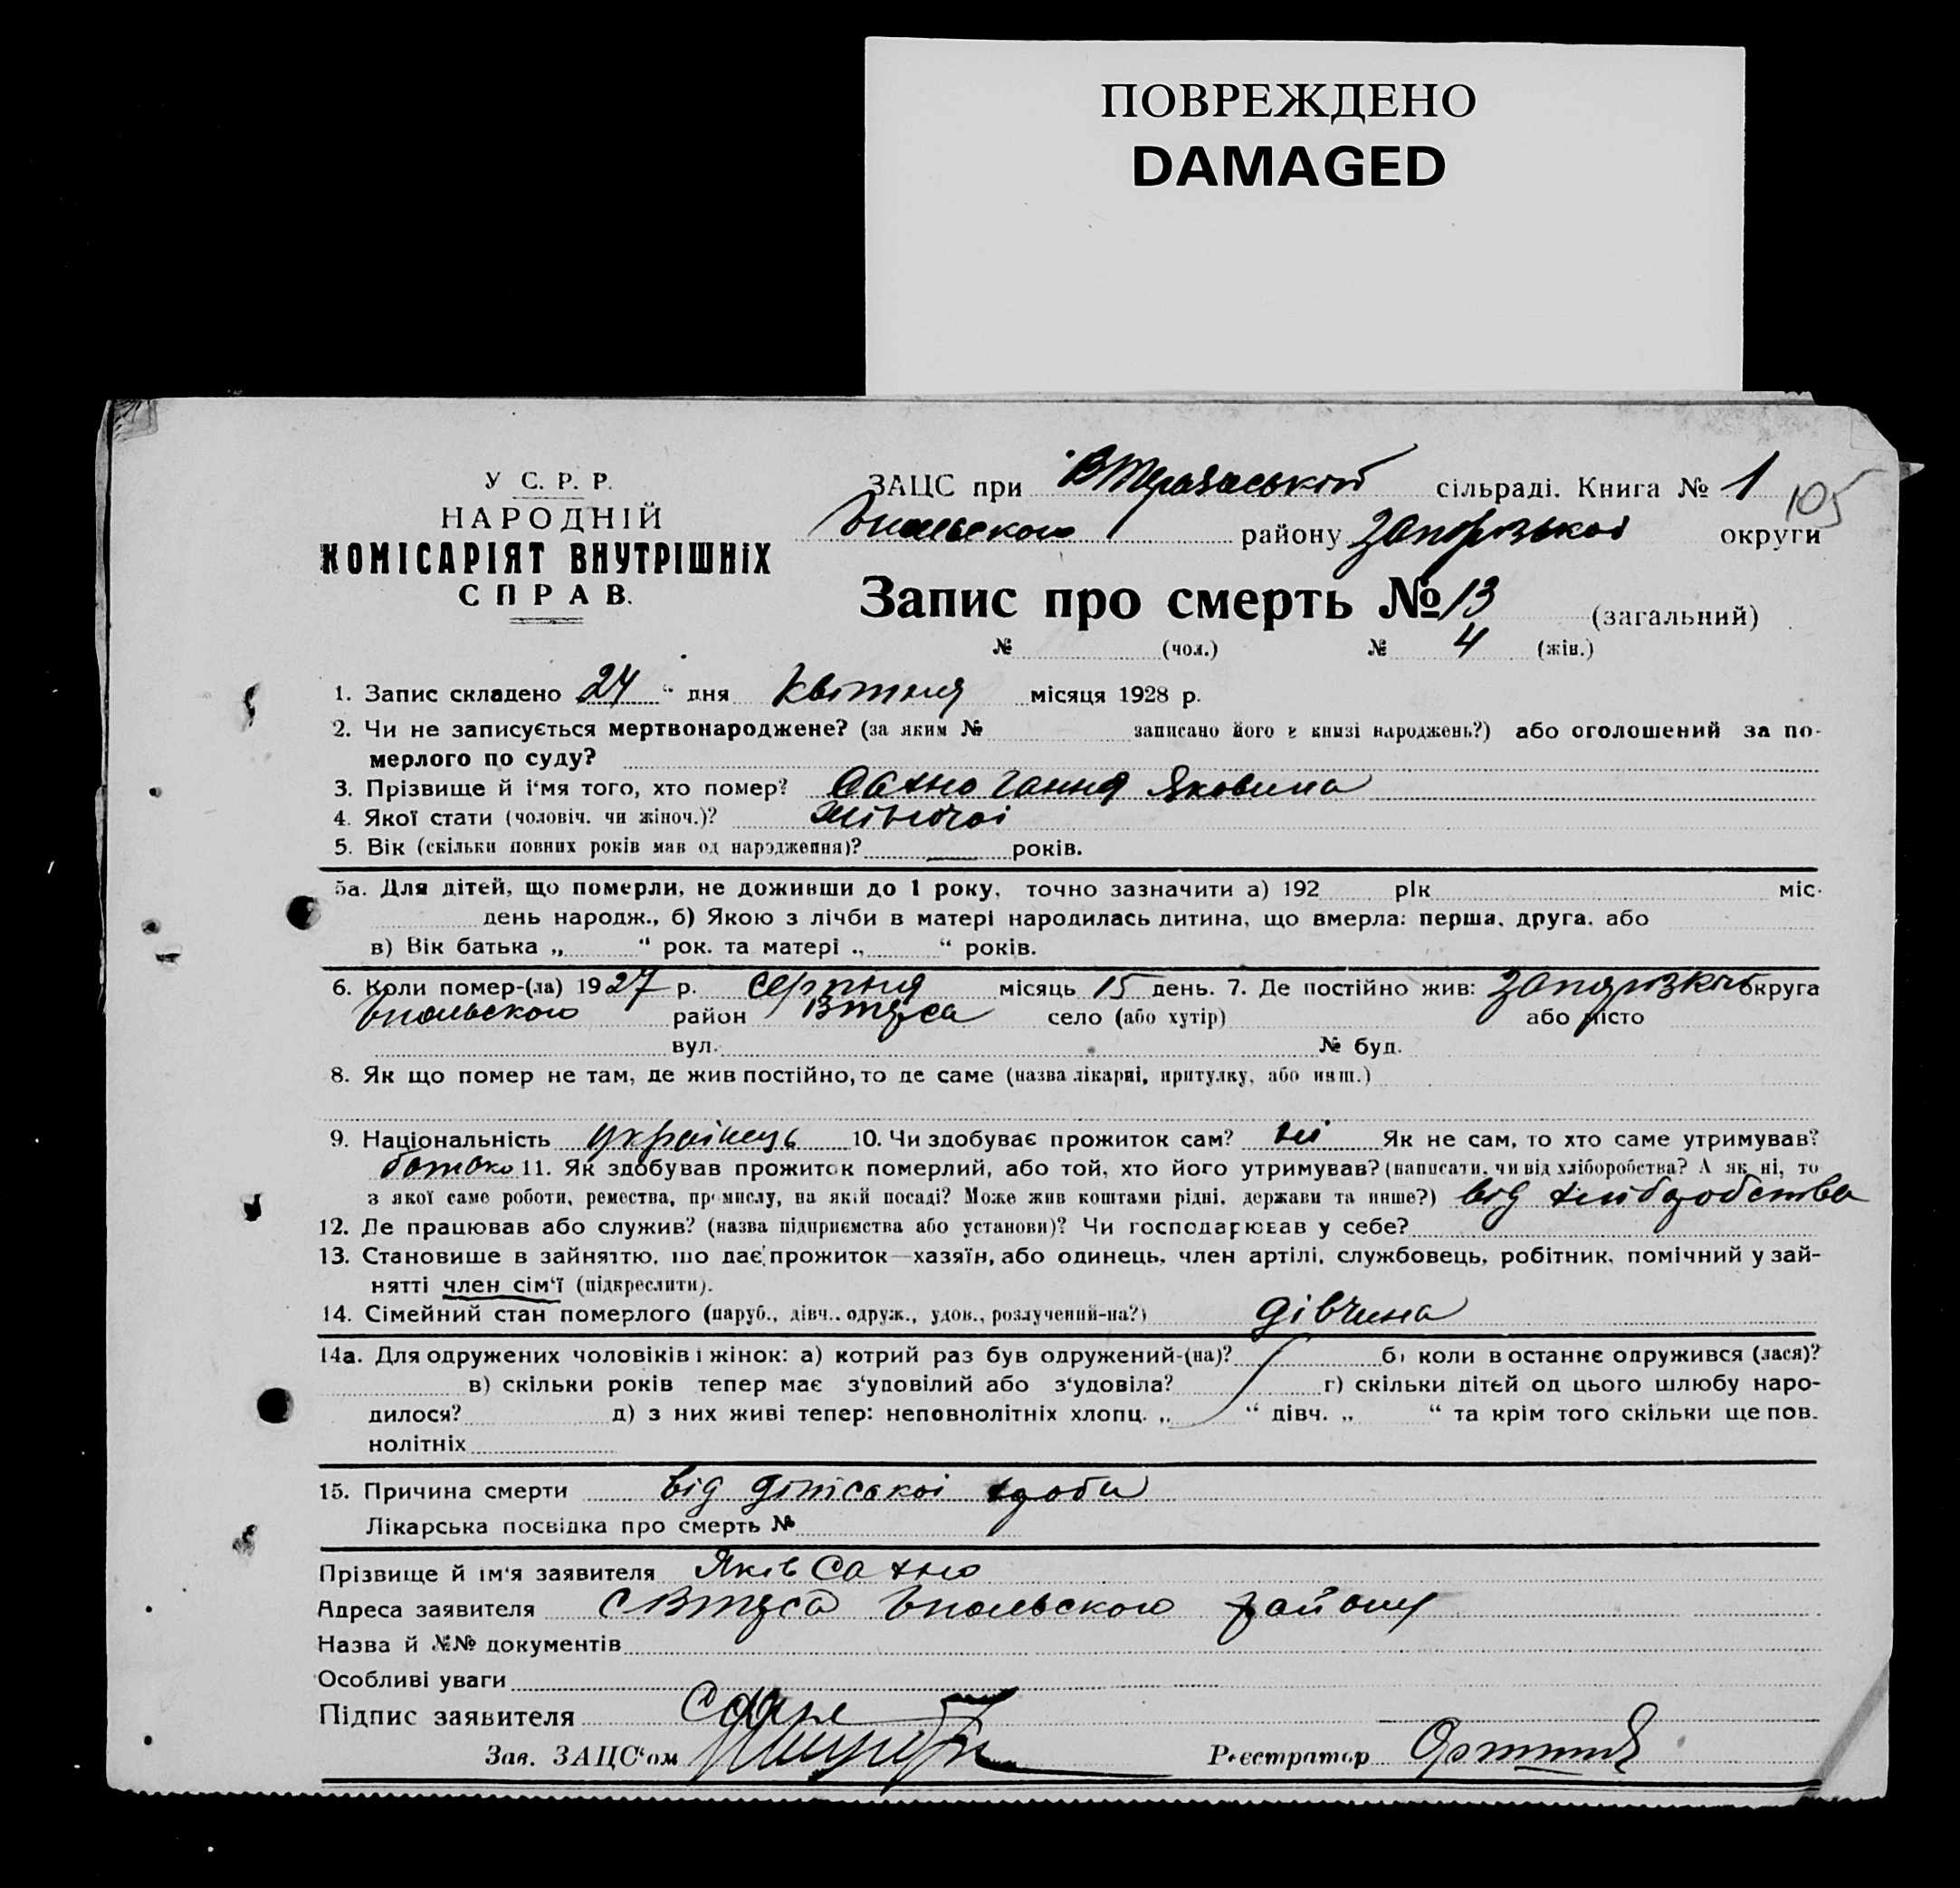 ПОВРЕЖДЕНО
DAMAGED
У С. Р. Р.
НАРОДНІЙ
КОМІСАРІЯТ ВНУТРІШНІХ
СПРАВ.
ЗАЦС при сільраді. Книга № 1
105
району Запорізькоі округи
Запис про смерть № 13 (загальний)
№ (чол.) № 4 (жін.)
1. Запис складено 24 “ дня квітня місяця 1928 р.
2. Чи не записується мертвонароджене? (за яким № записано його в книзі народжень?) або оголошений за по-
мерлого по суду?
3. Прізвище й і‘мя того, хто помер? Сахно Ганна Яковина
4. Якої стати (чоловіч. чи жіноч.)? жіночоі
5. Вік (скільки повних років мав од народження)? — років.
5а. Для дітей, що померли, не доживши до 1 року, точно зазначити а) 192 рік міс.
день народж., б) Якою з лічби в матері народилась дитина, що вмерла: перша, друга, або
в) Вік батька „ “ рок. та матері „ “ років.
6. Коли помер-(ла) 1927 р. серпня місяць 15 день. 7. Де постійно жив: округа
район село (або хутір) або місто
вул. № буд.
8. Як що помер не там, де жив постійно, то де саме (назва лікарні, притулку, або инш.)
9. Національність українець 10. Чи здобуває прожиток сам? ні Як не сам, то хто саме утримував?
батько 11. Як здобував прожиток померлий, або той, хто його утримував? (написати, чи від хліборобства? А як ні, то
з якої саме роботи, ремества, промислу, на якій посаді? Може жив коштами рідні, держави та инше?) від хліборобства
12. Де працював або служив? (назва підприємства або установи)? Чи господарював у себе?
13. Становище в зайняттю, що дає прожиток—хазяїн, або одинець, член артілі, службовець, робітник, помічний у зай-
нятті член сім‘ї (підкреслити).
14. Сімейний стан померлого (паруб., дівч., одруж., удов., розлучений-на?) дівчина
14а. Для одружених чоловіків і жінок: а) котрий раз був одружений-(на)? б) коли в останнє одружився (лася)?
в) скільки років тепер має з‘удовілий або з‘удовіла? г) скільки дітей од цього шлюбу наро-
дилося? д) з них живі тепер: неповнолітніх хлопц. „ “ дівч. „ “ та крім того скільки ще пов.
нолітніх
15. Причина смерти від дітіської хороби
Лікарська посвідка про смерть №
Прізвище й ім‘я заявителя Яків Сахно
Адреса заявителя району
Назва й №№ документів
Особливі уваги
Підпис заявителя
Зав. ЗАЦС‘ом Реєстратор